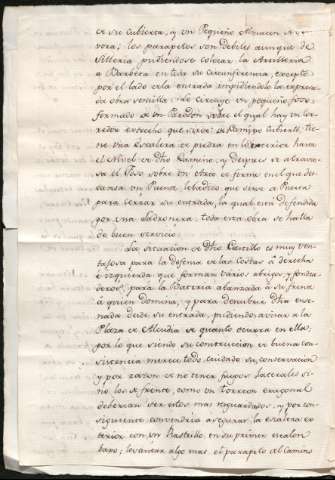 de su Cubierta, y un Pequeño Almacen de
vora; los parapetos son debiles aunque de
Silleria, pudiendose colocar la Artilleria
a Barbeta en toda su circunferencia, excepto
por el lado de la entrada impidiendolo la expresa-
da otra Le Circuye un pequeño foso
formado de un Paredon sobre el qual hay un Co-
rredor estrecho que sirve de Camino Cubierto. Tie-
ne una Escalera de piedra en lo exterior hasta
el Nivel de dho Camino, y despues se atravie-
sa el Foso sobre un Arco de firme en el que des-
cansa un Puente lebadizo que sirve de Puerta
para serrar su entrada, la qual está defendida
por una Ladronera, toda esta obra se halla
de buen servicio.
La situacion de Dho Castillo es muy ven-
tajosa para la defensa de las Costas de derecha
é izquierda que forman varios abrigos y fondea-
deros, para la Bateria abanzada à su frente
à quien domina, y para descubrir dha en-
senada desde su entrada, pudiendo avisar a la
Plaza de Alcudia de quanto ocurra en ella,
por lo que siendo su construccion de buena con-
sistencia merece todo cuidado su conservacion
y por razon de no tener fuegos laterales si-
no los de frente, como un torreon exagonal
deberian ser estos mas resguardados, y por con-
siguiente convendria asegurar la escalera ex-
terior con un Rastrillo en su primer escalon
levantar algo mas el parapeto del camino